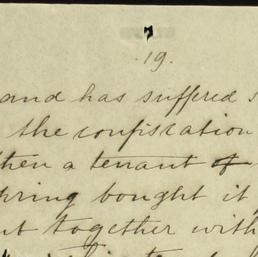 19.
and has suffered
the confiscation
then a tenant of
bought it
together with